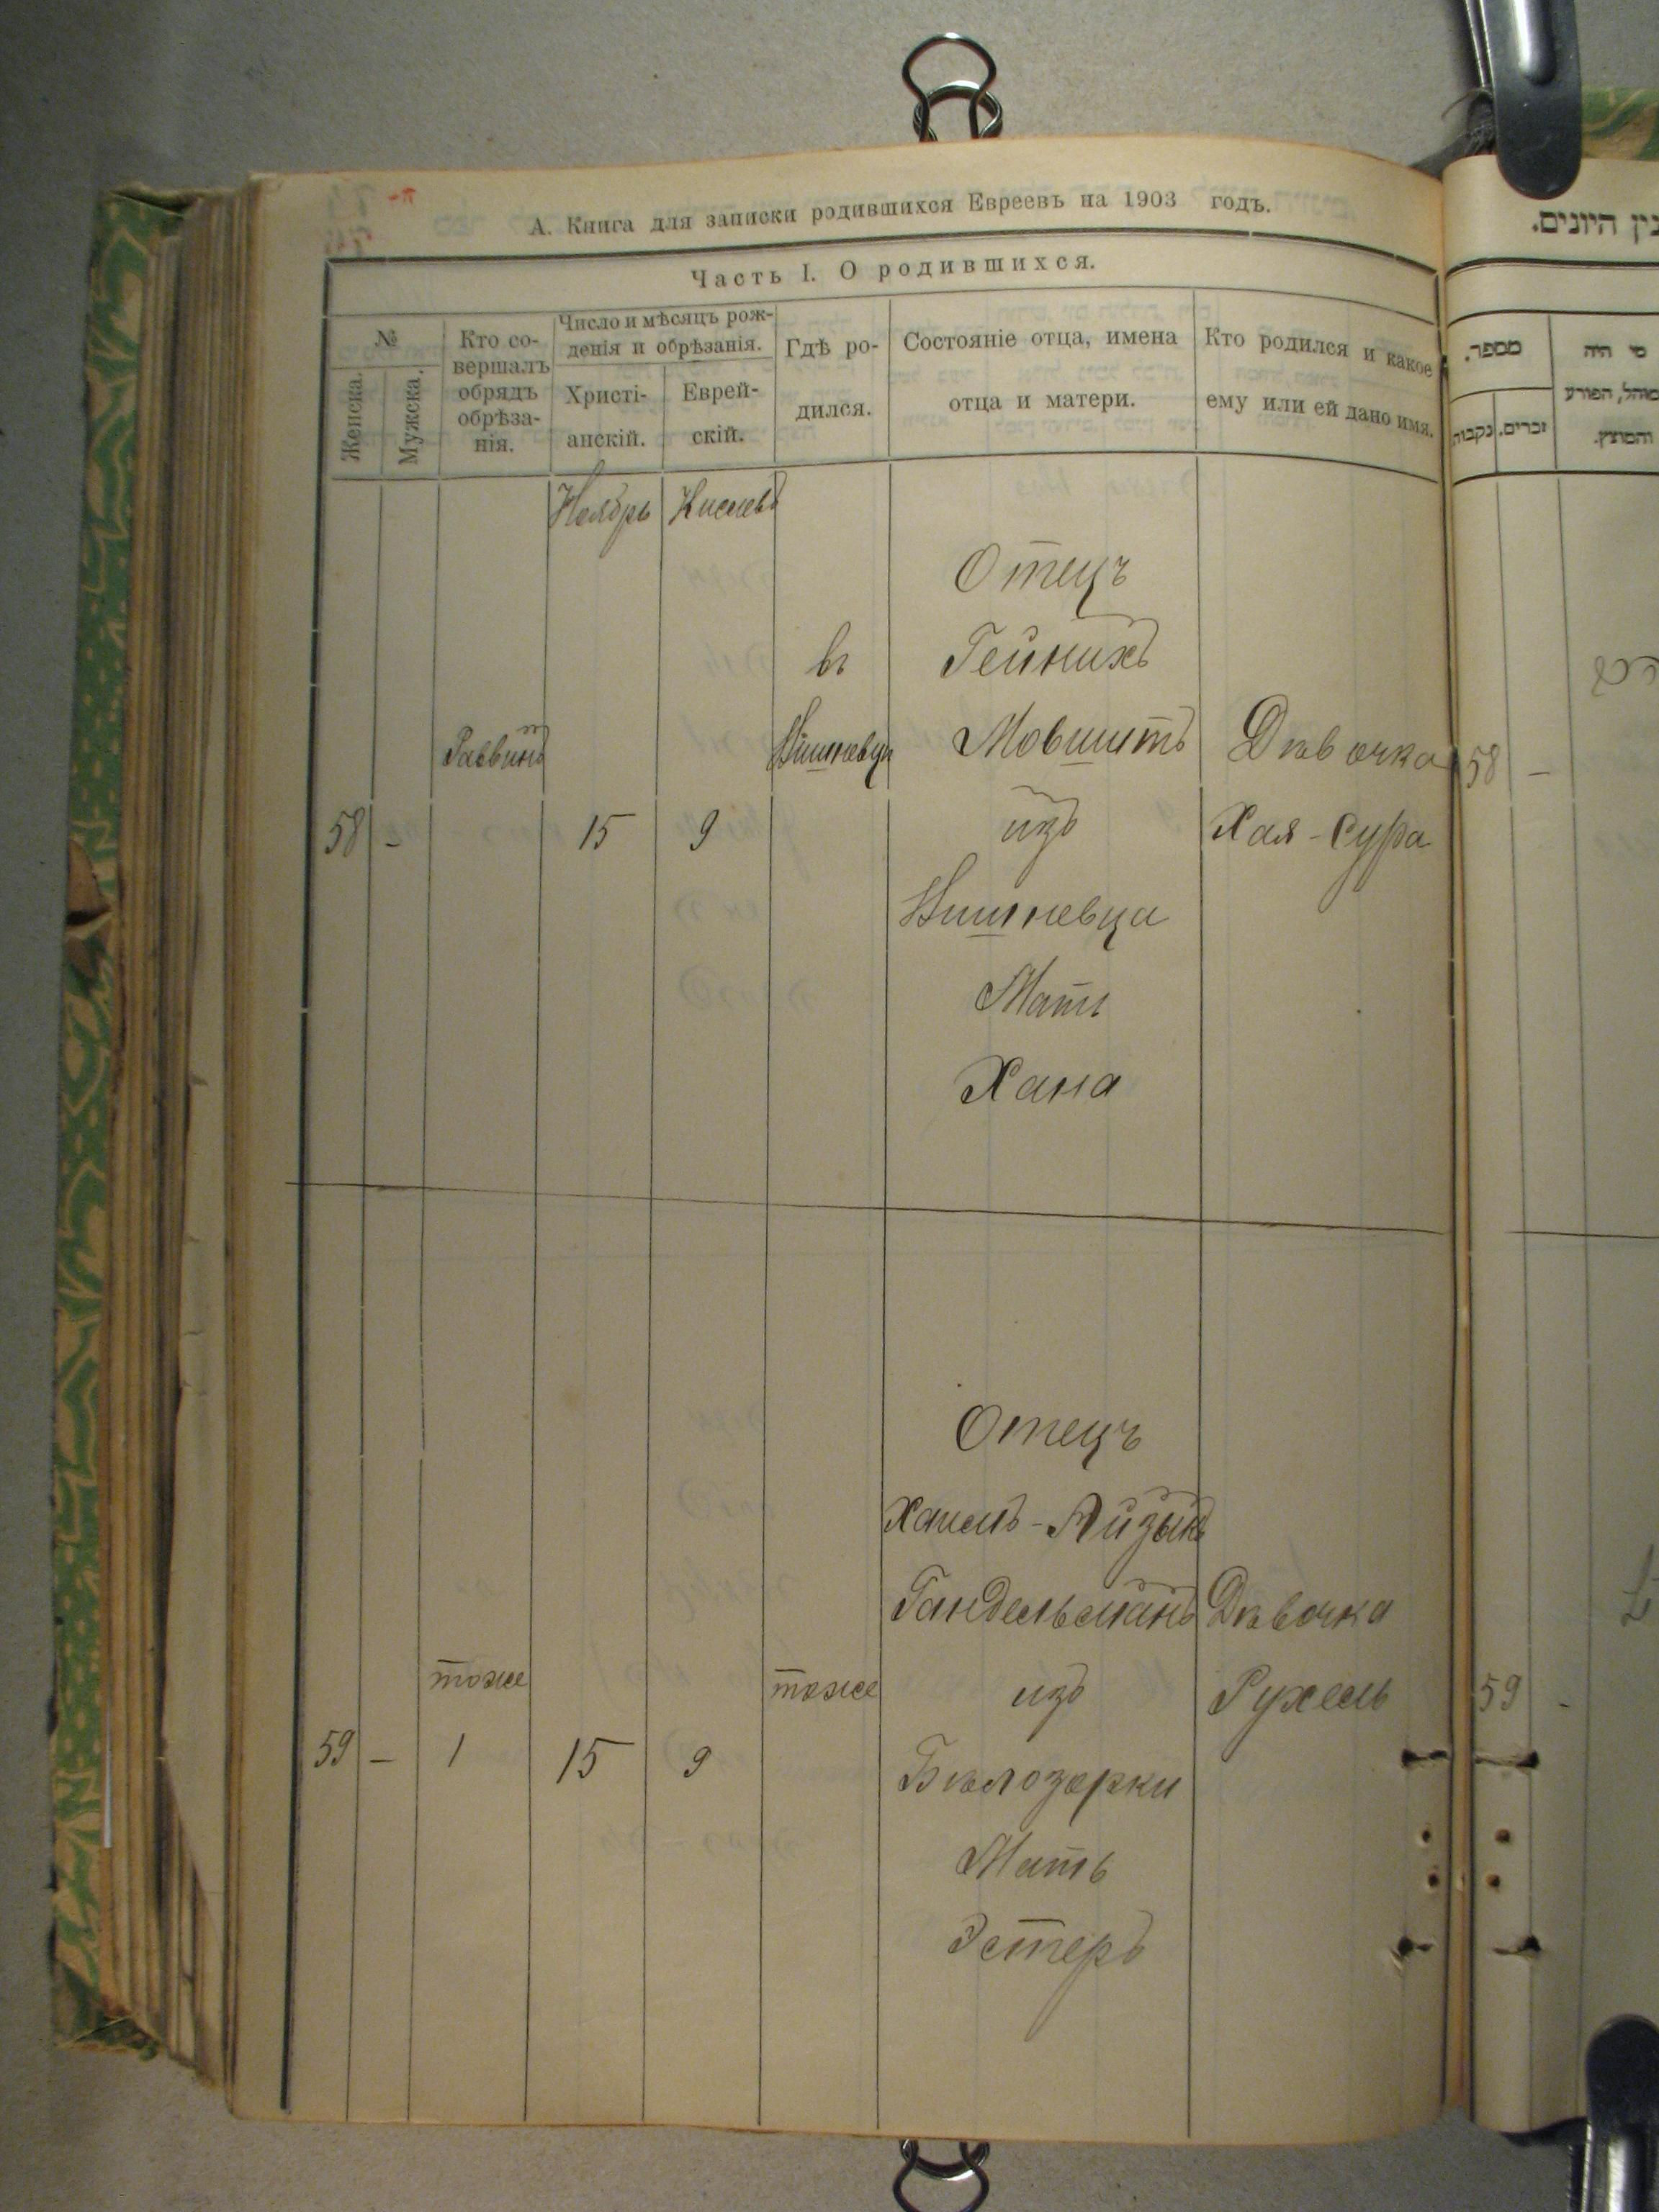 А. Книга для записки родившихся Евреевъ на 1903 годъ.
Часть I. О родившихся.
№
Женска.
Мужска.
Кто со-
вершалъ
обрядъ
обрѣза-
нія.
Число и мѣсяцъ рож-
денія и обрѣзанія.
Христі-
анскій.
Еврей-
скій.
Гдѣ ро-
дился.
Состояніе отца, имена
отца и матери.
Кто родился и какое
ему или ей дано имя.
מספר.
נקבות
זכרים.
מי היה
מוהל, הפורע
והמוצץ.
Ноябрь Кислевъ
Отецъ
въ Гейнихъ
Раввинъ Мовшитъ Дѣвочка 58 —
58 - 15 9 изъ Хая-Сура
Мать
Хана
Отецъ
-Айзыкъ
Гандельманъ Дѣвочка
тоже тоже изъ Рухель 59 -
59 — 1 15 9 Бѣлозорки
Мать
Эстеръ